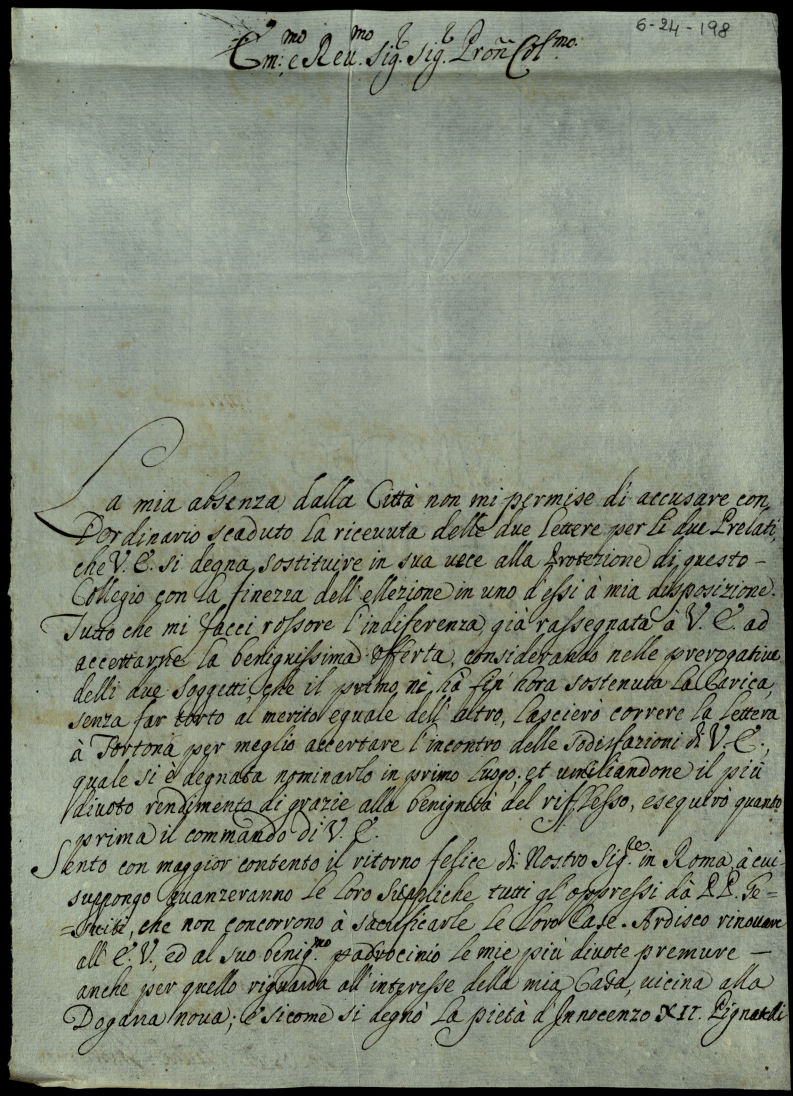 6-24-198
Em:mo e Reu.mo Sig.r Sig.r Pron Col.mo
La mia absenza dalla Città non mi permise di accusare con
l'ordinario scaduto la riceuuta delle due lettere per li due Prelati,
che V. E. si degna sostituire in sua uece alla Protezione di questo -
Collegio con la finezza dell'ellezione in uno d'essi à mia disposizione.
Tutto che mi facci rossore l'indiferenza già rassegnata à V. E. ad
accettarne la benignissima offerta, considerando nelle prerogatiue
delli due Soggetti, che il primo ni hà fin' hora sostenuta la Carica,
senza far torto al merito eguale dell'altro, lascierò correre la lettera
à Tortona per meglio accertare l'incontro delle sodisfazioni di V. E.,
quale si è degnata nominarlo in primo luogo, et umiliandone il più
diuoto rendimento di grazie alla benignità del riflesso, eseguirò quanto
prima il commando di V. E.
Sento con maggior contento il ritorno felice di Nostro Sig.re in Roma, à cui
suppongo auanzeranno le loro suppliche tutti gl'oppressi dà P.P. Ge=
=suiti, che non concorrono à sacrificarle le loro Case. Ardisco rinouare
all'E. V., ed al suo benig.mo padrocinio le mie più diuote premure -
anche per quello riguarda all'interesse della mia Casa, uicina alla
Dogana noua; e sicome si degnò la pietà d'Innocenzo XII. Pignatelli